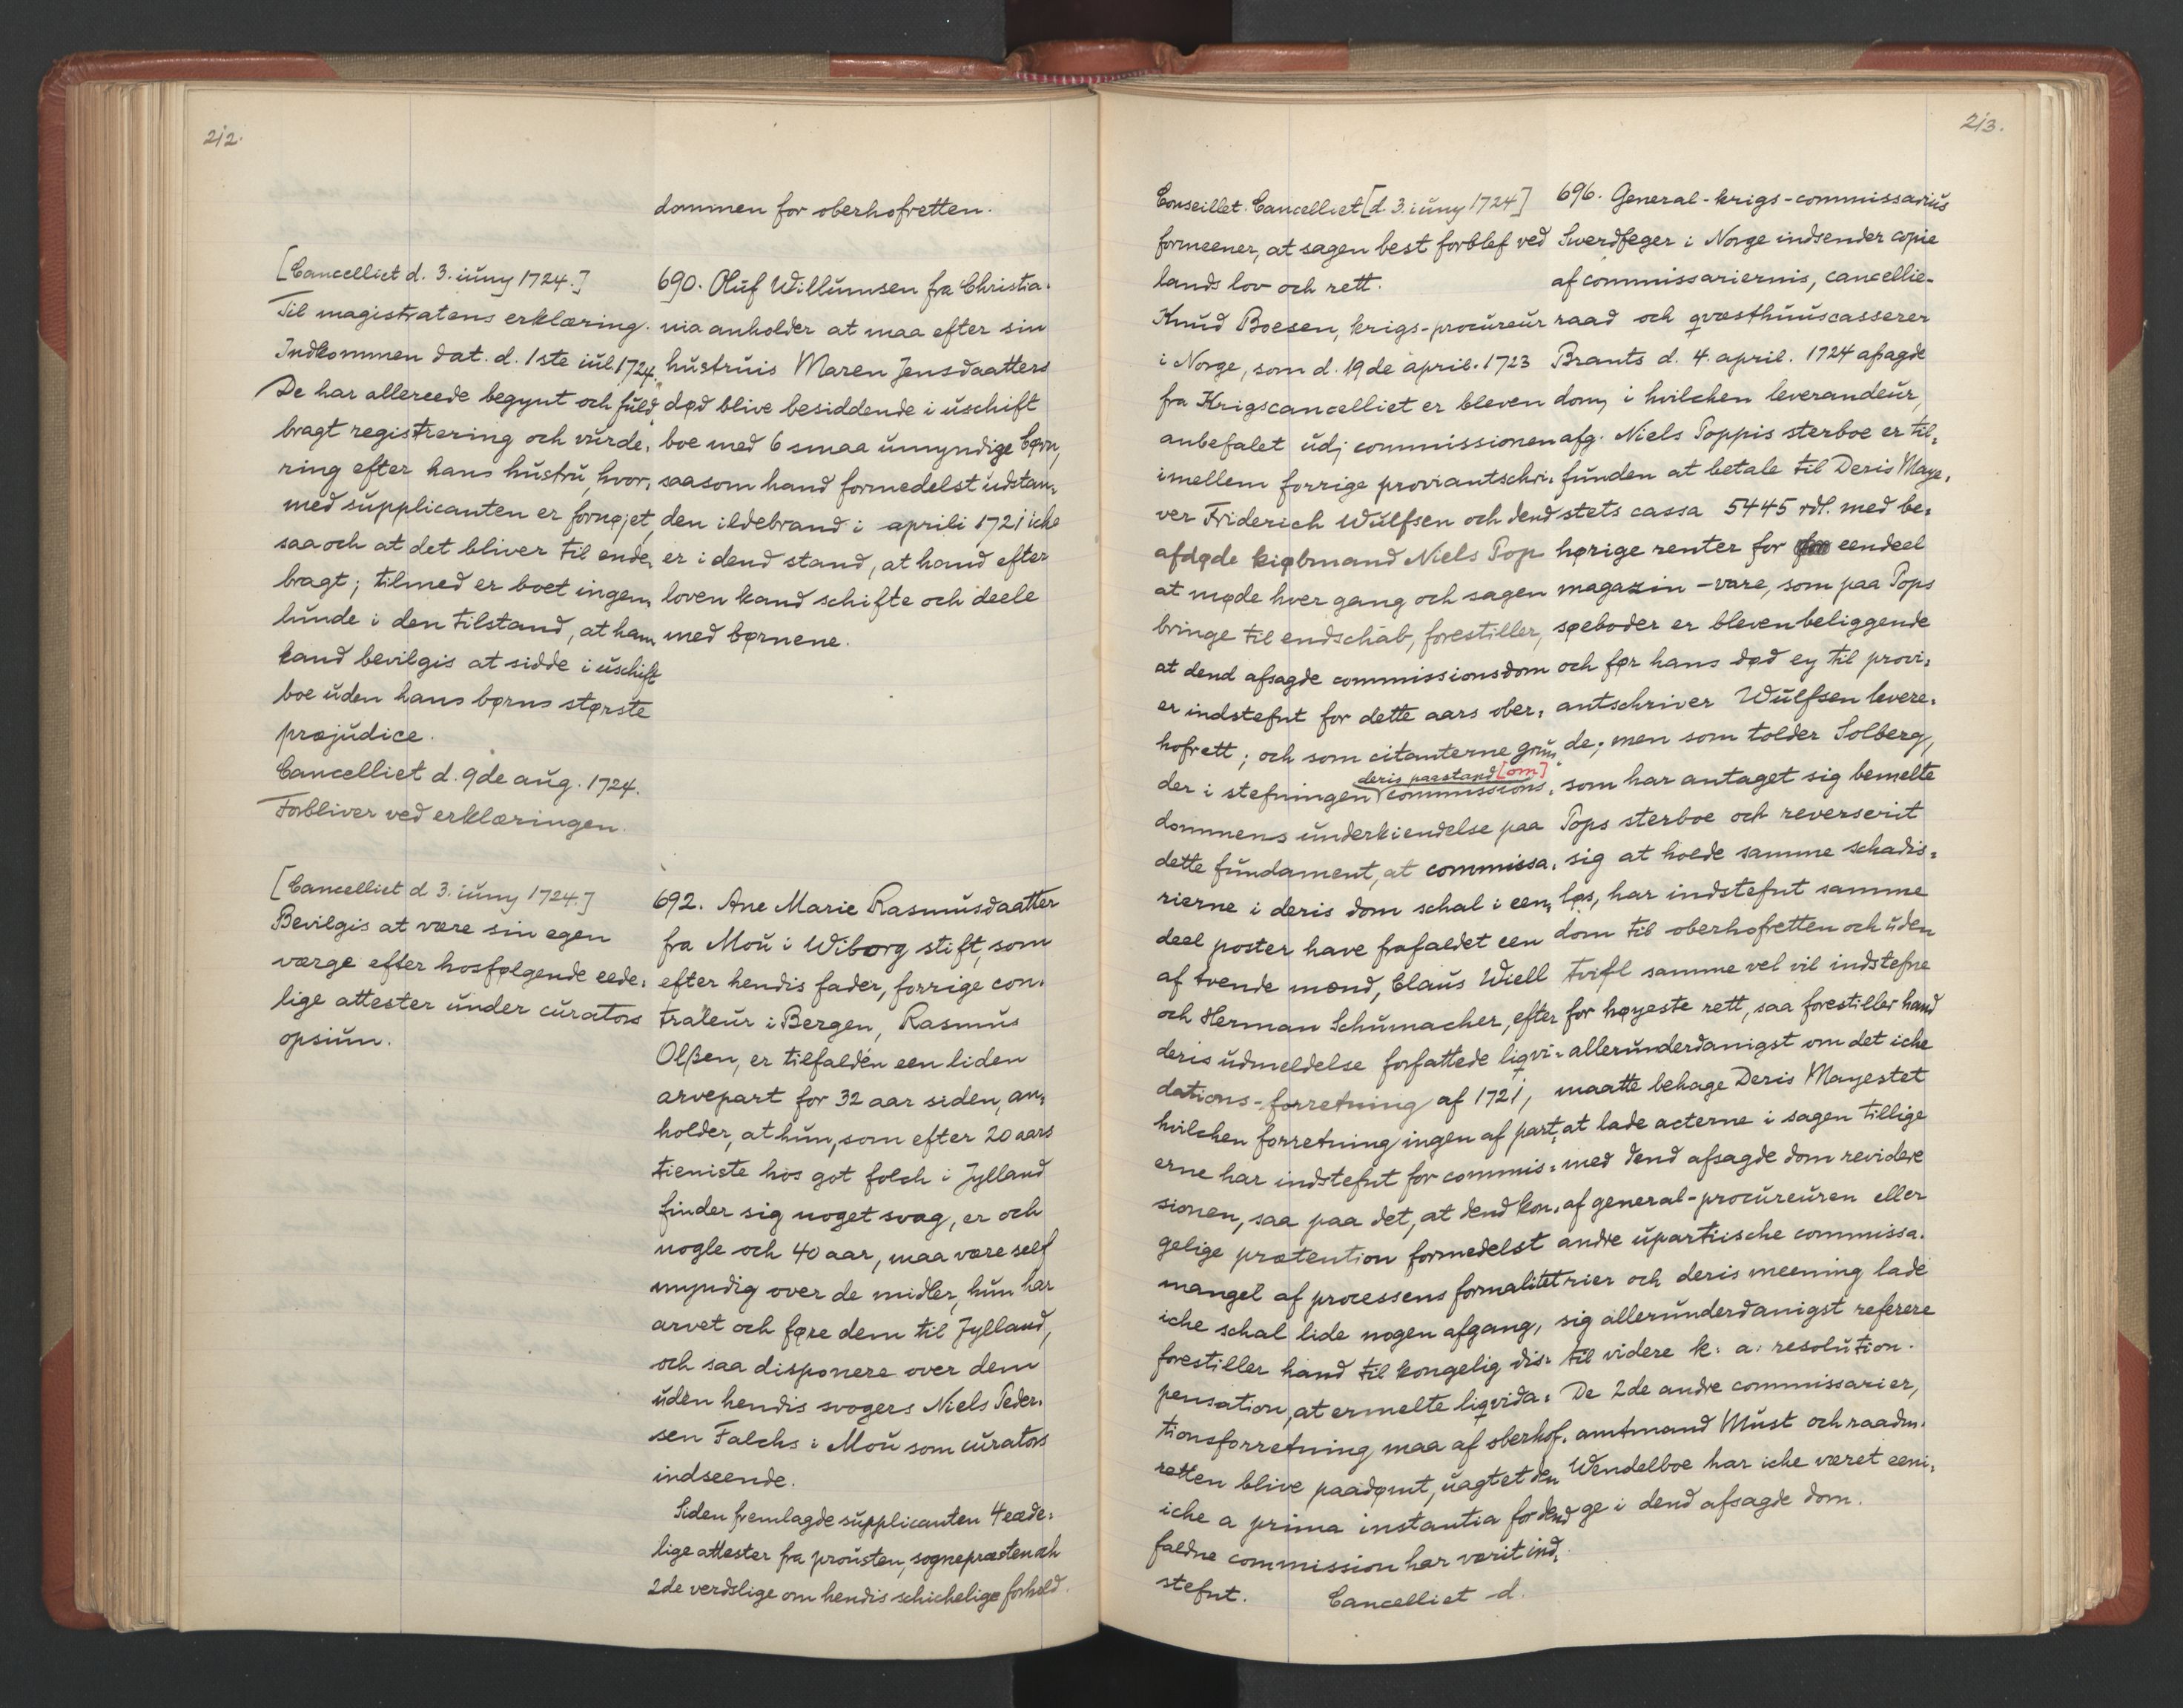 212.
dommen for oberhofretten.
[Cancelliet d. 3. iüny 1724.]
Til magistratens erklæring.
Indkommen dat. d. 1ste iül. 1724.
De har allereede begynt och füld=
bragt registrering och vürde=
ring efter hans hüstrü, hvor=
med süpplicanten er fornøjet,
saa och at det bliver til ende=
bragt; tilmed er boet ingen=
lünde i den tilstand, at ham
kand bevilgis at sidde i üschift
boe üden hans børns største
præjüdice.
Cancelliet d. 9de aüg. 1724.
Forbliver ved erklæringen.
690. Olüf Willümsen fra Christia=
nia anholder at maa efter sin
hüstrüis Maren Jensdaatters
død blive besiddende i üschift
boe med 6 smaa ümyndige børn,
saasom hand formedelst üdstan=
den ildebrand i aprili 1721 iche
er i dend stand, at hand efter
loven kand schifte och deele
med børnene.
[Cancelliet d 3. iüny 1724.]
Bevilgis at være sin egen
værge efter hosfølgende eede=
lige attester ünder cürators
opsiün.
692. Ane Marie Rasmüsdaatter
fra Moü i Wiborg stift, som
efter hendis fader, forrige con=
traleür i Bergen, Rasmüs
Olßen, er tilfalden een liden
arvepart for 32 aar siden, an=
holder, at hün, som efter 20 aars
tieniste hos got folch i Jylland
finder sig noget svag, er och
nogle och 40 aar, maa være self
myndig over de midler, hün har
arvet och føre dem til Jylland,
och saa disponere over dem
üden hendis svogers Niels Peder=
sen Falchs i Moü som cürators
indseende.
Siden fremlagde süpplicanten 4 eæde=
lige attester fra proüsten, sognepræsten och
2de verdslige om hendis schichelige forhold.
213.
Conseillet. Cancelliet [d. 3. iüny 1724]
formeener, at sagen best forblef ved
lands lov och rett.
Knüd Boesen, krigs-procüreür
i Norge, som d. 19de april. 1723
fra Krigscancelliet er bleven
anbefalet üdj commissionen
imellem forrige proviantschri=
ver Friderich Wülfsen och dend
afdøde kiøbmand Niels Pop
at møde hver gang och sagen
bringe til endschab, forestiller,
at dend afsagde commissionsdom
er indstefnt for dette aars ober=
hofrett; och som citanterne grün=
deris paastand [om]
der i stefningen commissions=
dommens ünderkiendelse paa
dette fündament, at commissa=
rierne i deris dom schal i een=
deel poster have frafaldet een
af tvende mænd, Claüs Wiell
och Herman Schümacher, efter
deris üdmeldelse forfattede liqvi=
dations-forretning af 1721,
hvilchen forretning ingen af part=
erne har indstefnt for commis=
sionen, saa paa det, at dend kon=
gelige prætention formedelst
mangel af processens formalitet
iche schal lide nogen afgang,
forestiller hand til kongelig dis=
pensation, at ermelte liqvida=
tionsforretning maa af oberhof=
retten blive paadømt, üagtet den
iche a prima instantia for dend
faldne commission har værit ind=
stefnt.
Cancelliet d.
696. General-krigs-commissariüs
Swerdfeger i Norge indsender copie
af commissariernis, cancellie=
raad och qvæsthüüscasserer
Brants d. 4. april. 1724 afsagde
dom, i hvilchen leverandeür,
afg. Niels Poppis sterboe er til=
fünden at betale til Deris Maye=
stets cassa 5445 rdl. med be=
hørige renter for eendeel
magazin-vare, som paa Pops
søeboder er bleven beliggende
och før hans død ey til provi=
antschriver Wülfsen levere=
de; men som tolder Solberg,
som har antaget sig bemelte
Pops sterboe och reverserit
sig at holde samme schadis=
løs, har indstefnt samme
dom til oberhofretten och üden
tvifl samme vel vil indstefne
for høyeste rett, saa forestiller hand
alleründerdanigst om det iche
maatte behage Deris Mayestet
at lade acterne i sagen tillige
med dend afsagde dom revidere
af general-procüreüren eller
andre üpartiische commissa=
rier och deris meening lade
sig alleründerdanigst referere
til videre k: a: resolütion.
De 2de andre commissarier,
amtmand Müst och raadm.
Wendelboe har iche været eeni=
ge i dend afsagde dom.